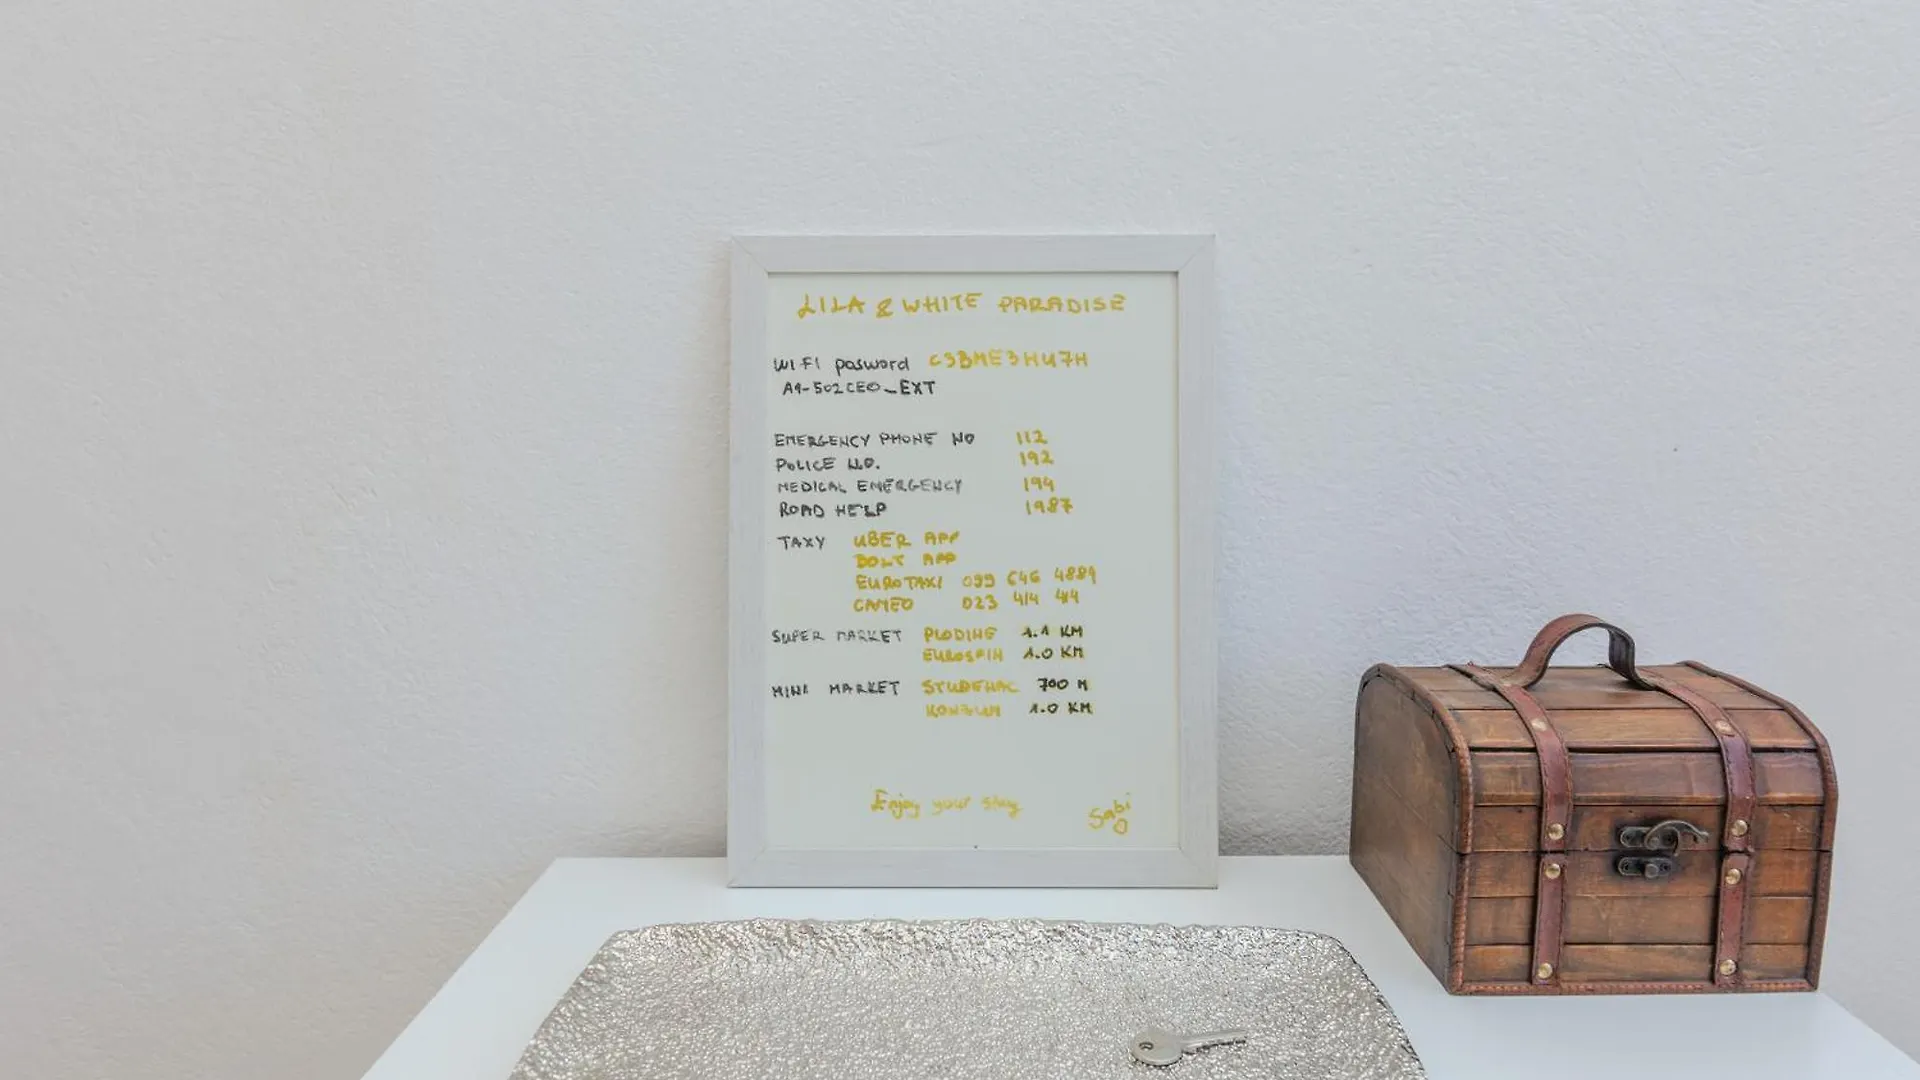 LILA & WHITE PARADISE
WI FI pasword C3BME3HU7H
A1-502CE0_EXT
EMERGENCY PHONE NO 112
POLICE NO. 192
MEDICAL EMERGENCY 194
ROAD HELP 1987
TAXY UBER APP
BOLT APP
EUROTAXI 099 646 4889
CAMEO 023 414 414
SUPER MARKET PLODINE 1.1 KM
EUROSPIN 1.0 KM
MINI MARKET STUDENAC 700 M
KONZUM 1.0 KM
Enjoy your stay
Sabi